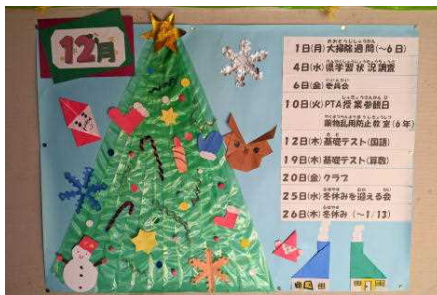 12月
1日(月)大掃除週間(～6日)
4日(水)県学習状況調査
6日(金)委員会
10日(火)PTA授業参観日
薬物乱用防止教室(6年)
12日(木)基礎テスト(国語)
19日(木)基礎テスト(算数)
20日(金)クラブ
25日(水)冬休みを迎える会
26日(木)冬休み(～1/13)